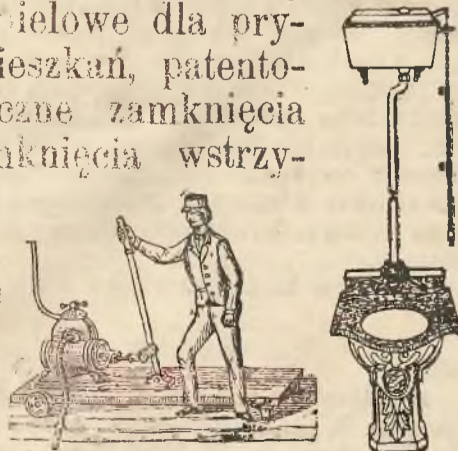 ielowe dla pry-
ieszkań, patento-
czne zamknięcia
nknięcia wstrzy-